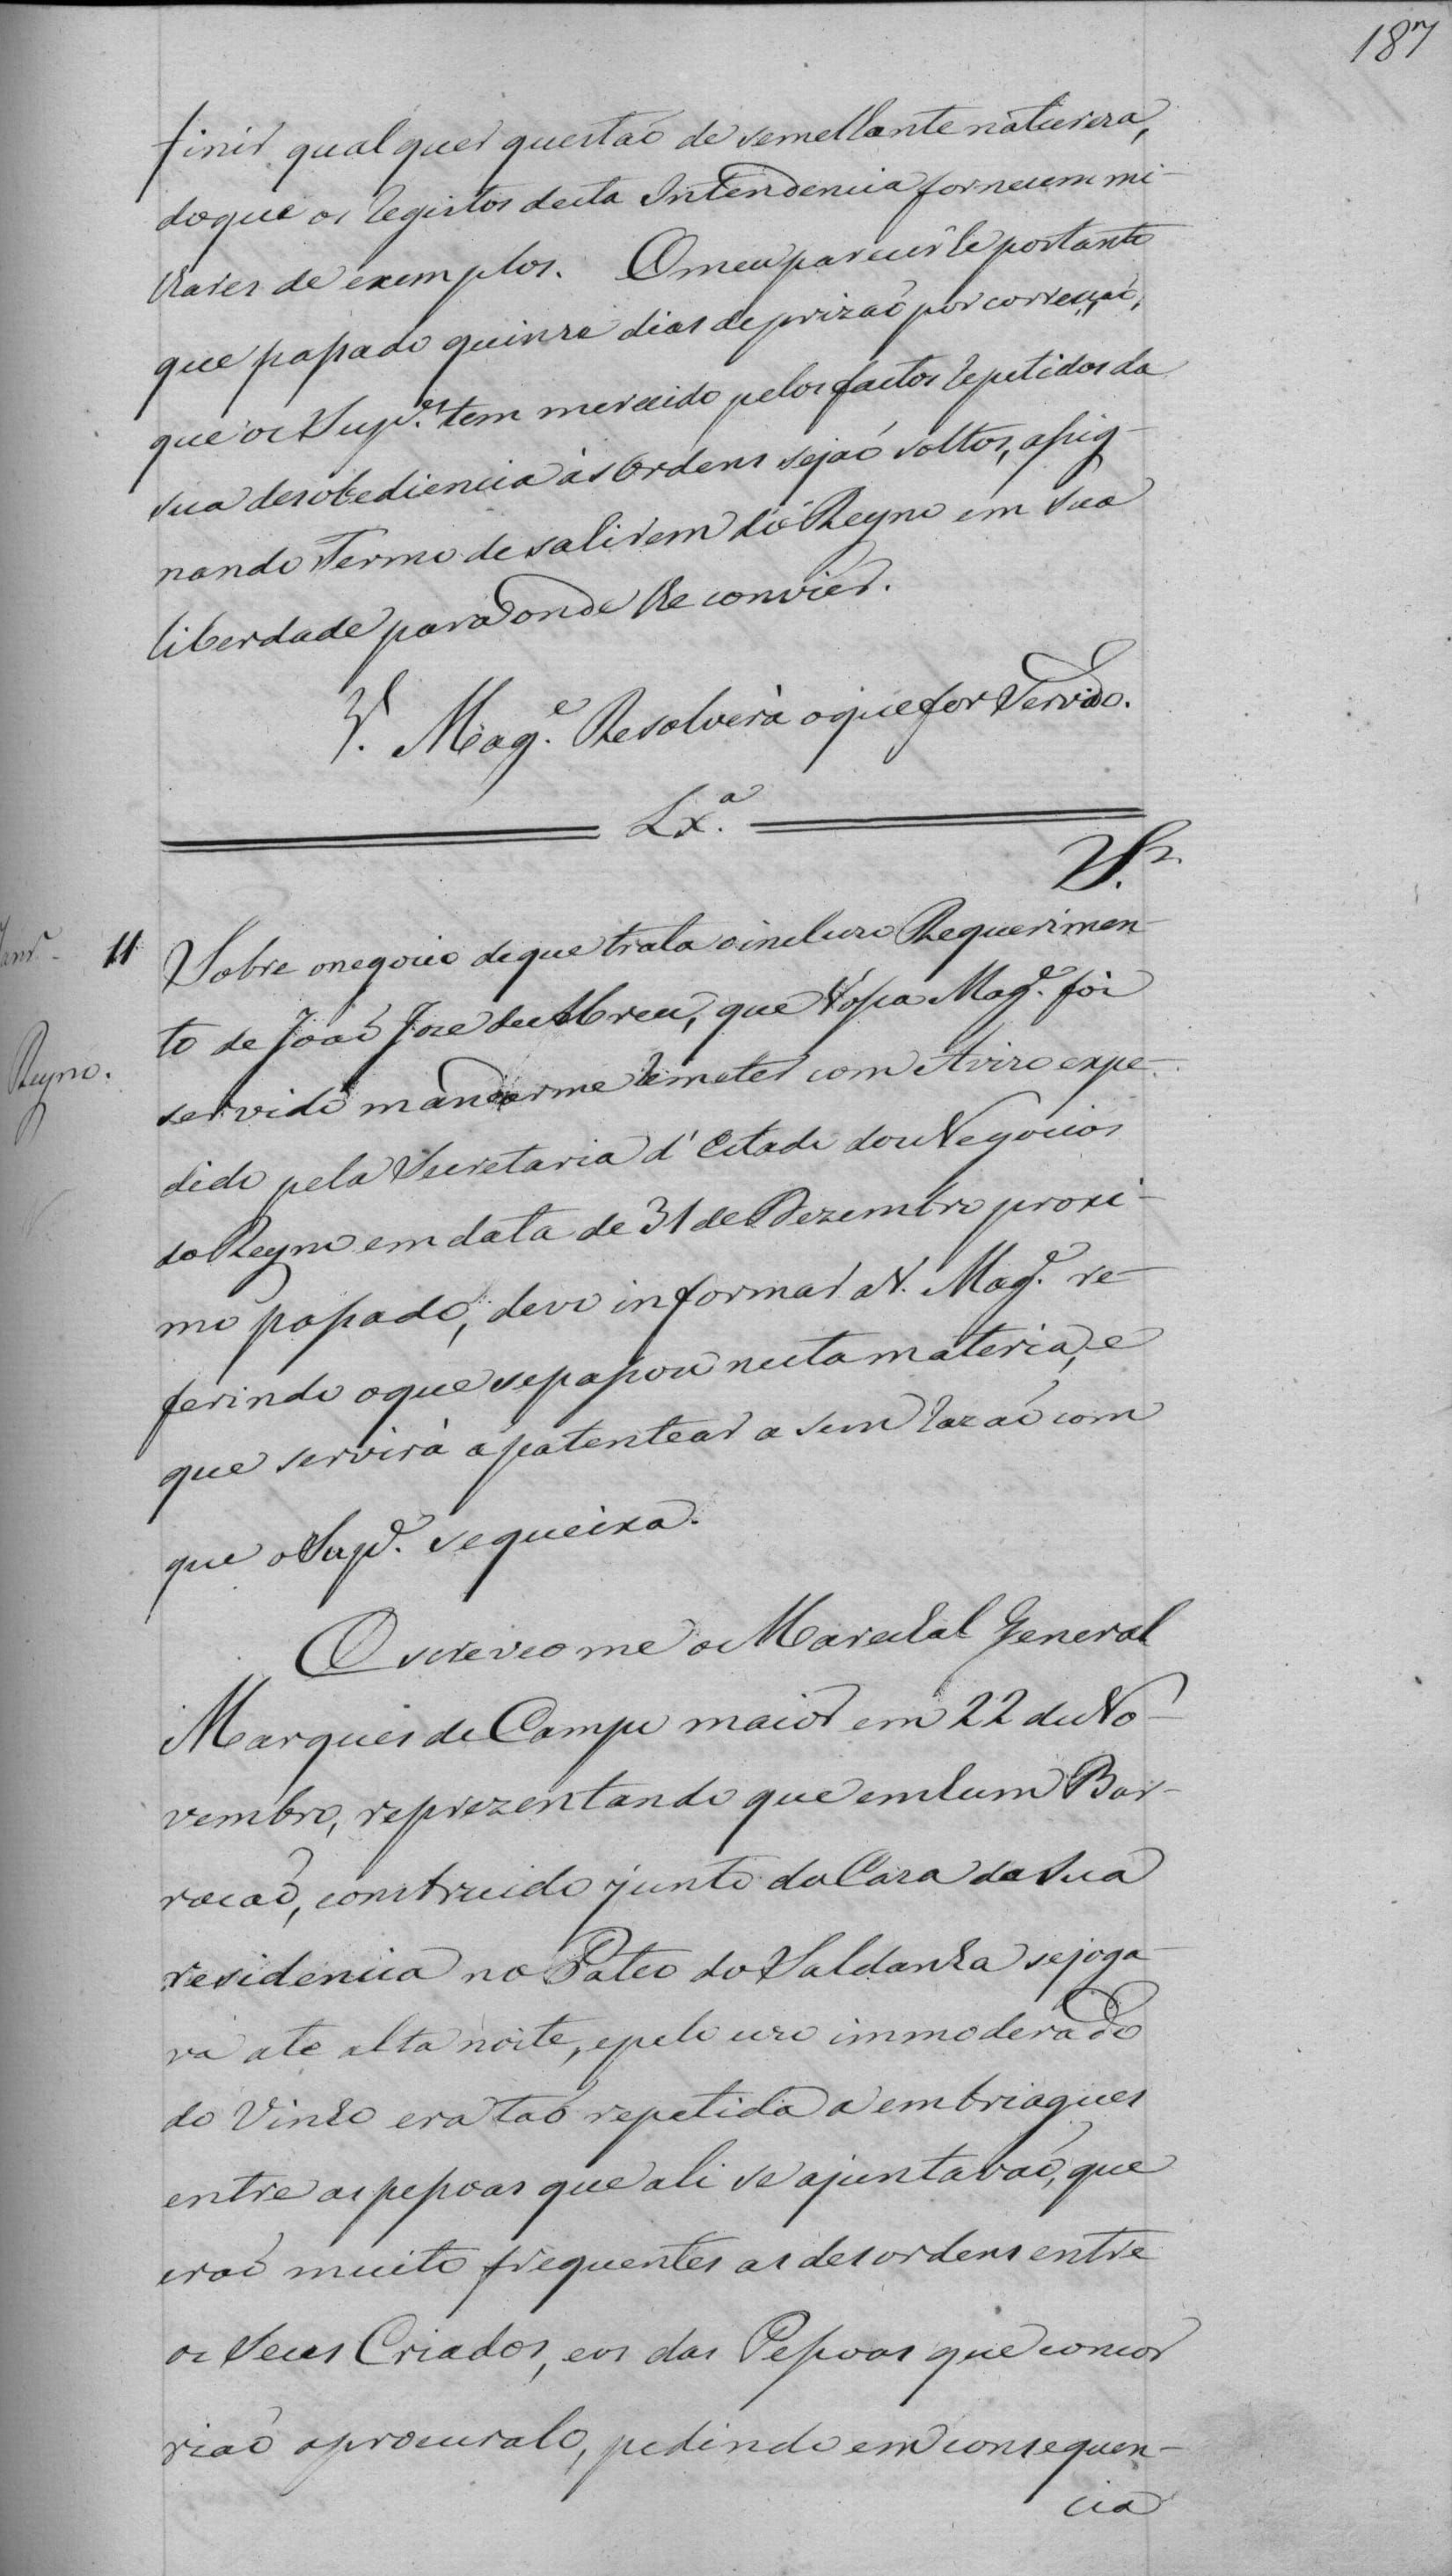 187
finir qualquer questaõ de semelhante natureza,
do que os Registos desta Intendencia fornecem mi-
lhares de exemplos. O meu parecer he portanto
que passado quinze dias de prizaõ por correcçaõ,
que os Supp.es tem merecido pelos factos repetidos da
sua desobediencia às Ordens sejaõ soltos, assig-
nando Termo de sahirem do Reyno em sua
liberdade para onde lhe convier.
V. Mag.e Resolverà o que for Servido.
Lx.a
S.r
11 Sobre o negocio de que trata o incluzo Requerimen-
to de Joaõ Joze de Abreu, que Vossa Mag.e foi
Reyno.
servido mandarme remeter com Avizo expe-
dido pela Secretaria d'Estado dos Negocios
do Reyno em data de 31 de Dezembro proxi-
mo passado, devo informar a V. Mag.e re-
ferindo o que se passou nesta materia, e
que servirà a patentear a sem razaõ com
que o Supp.e se queixa.
Escreveo me o Marechal General
Marques de Campo maior em 22 de No-
vembro, reprezentando que em hum Bar-
racaõ, construido junto da Caza da sua
residencia no Pateo do Saldanha se joga-
va ate alta noite, e pelo uzo immoderado
do Vinho era taõ repetida a embriagues
entre as pessoas que ali se ajuntavaõ, que
eraõ muito frequentes as desordens entre
os Seus Criados, e os das Pessoas que concor
riaõ a procuralo, pedindo em consequen-
cia